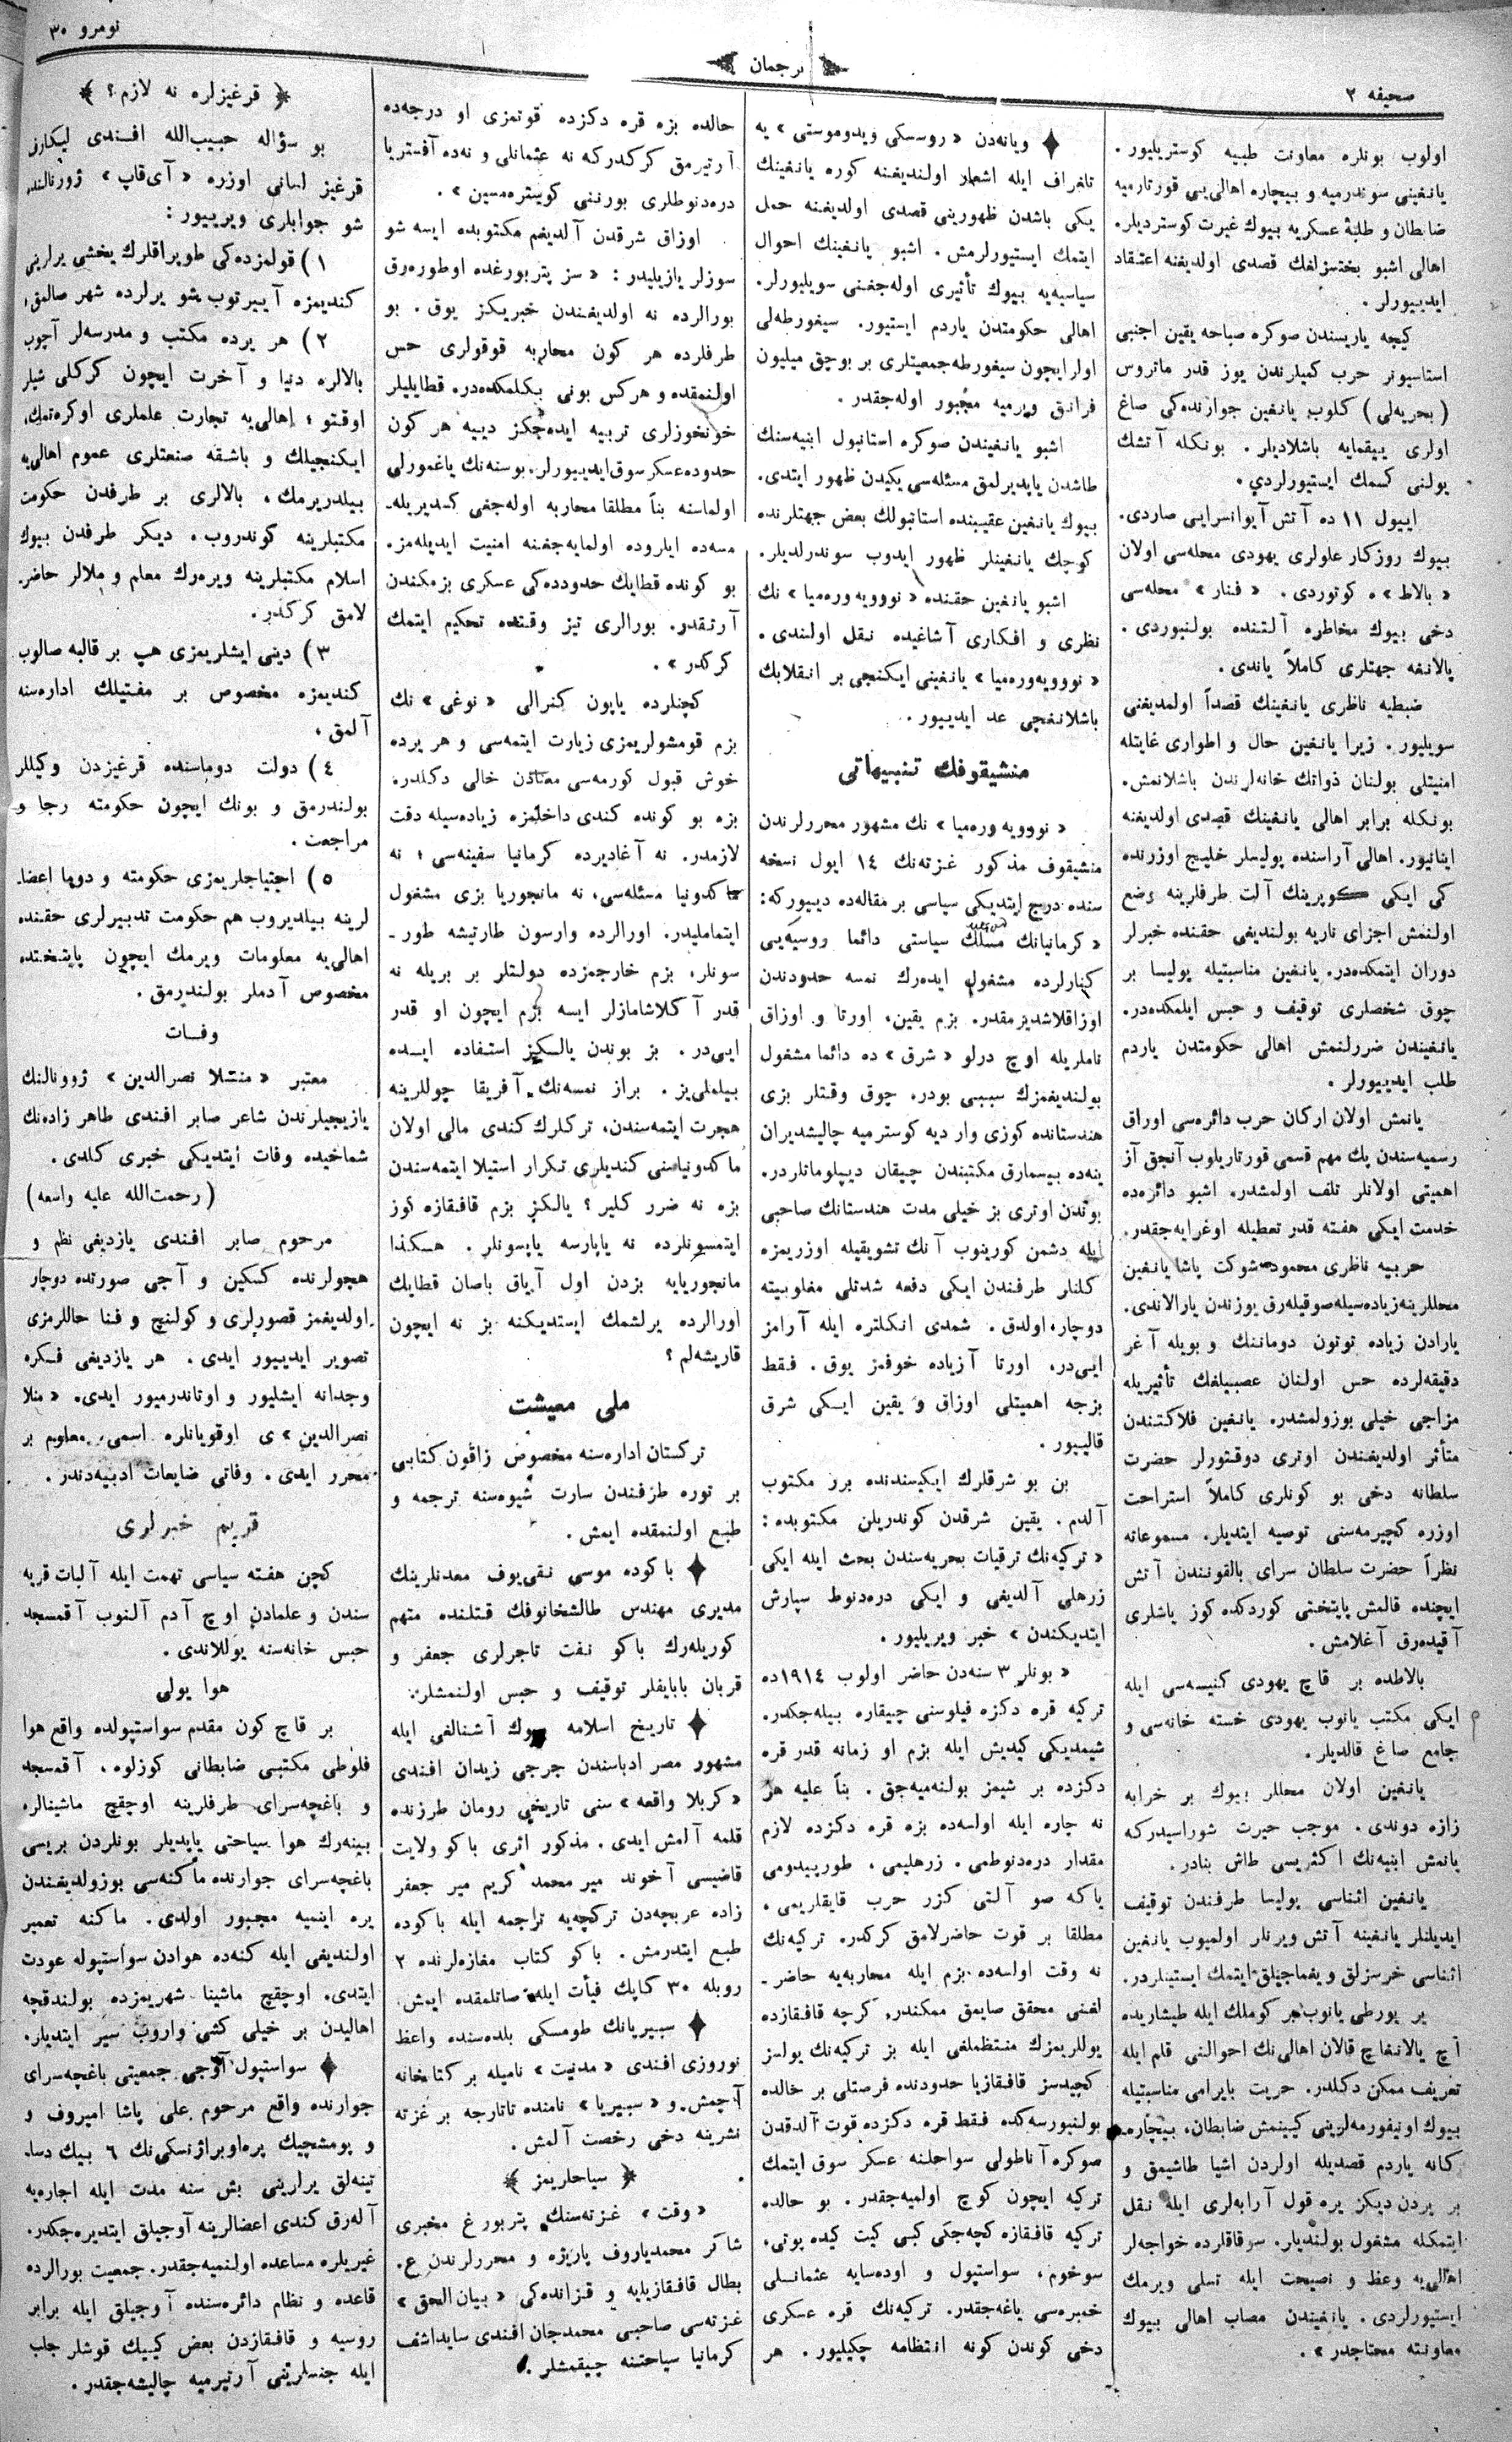 صحیفه ٢
ترجمان
نومرو ٣٠
اولوب بونلره معاونت طبیه کوستریلیور.
یانغینی سوندرمیه و بیچاره اهالی‌یی قورتارمیه
ضابطان و طلبهٔ عسکریه بیوك غیرت کوستردیلر.
اهالی اشبو بختسزلغك قصدی اولدیغنه اعتقاد
ایدییورلر.
کیجه یاریسندن صوکره صباحه یقین اجنبی
استاسیونر حرب کمیلرندن یوز قدر ماتروس
(بحریه‌لی) کلوب یانغین جوارنده‌کی صاغ
اولری ییقمایه باشلادیلر. بونکله آتشك
یولنی کسمك ایستیورلردی.
اییول ١١ ده آتش آیوانسرایی صاردی.
بیوك روزکار علولری یهودی محله‌سی اولان
« بالاط » ه کوتوردی. « فنار » محله‌سی
دخی بیوك مخاطره آلتنده بولنیوردی.
پالانغه جهتلری کاملاً یاندی.
ضبطیه ناظری یانغینك قصداً اولمدیغنی
سویلیور. زیرا یانغین حال و اطواری غایتله
امنیتلی بولنان ذواتك خانه‌لرندن باشلانمش.
بونکله برابر اهالی یانغینك قصدی اولدیغنه
اینانیور. اهالی آراسنده پولیسلر خلیج اوزرنده
کی ایکی کوپرینك آلت طرفلرینه وضع
اولنمش اجزای ناریه بولندیغی حقنده خبرلر
دوران ایتمکده‌در. یانغین مناسبتیله پولیسا بر
چوق شخصلری توقیف و حبس ایلمکده‌در.
یانغیندن ضررلنمش اهالی حکومتدن یاردم
طلب ایدییوورلر.
یانمش اولان ارکان حرب دائره‌سی اوراق
رسمیه‌سندن یك مهم قسمی قورتاریلوب آنجق آز
اهمیتی اولانلر تلف اولمشدر. اشبو دائره‌ده
خدمت ایکی هفته قدر تعطیله اوغرایه‌جقدر.
حربیه ناظری محمود شوکت پاشا یانغین
محللرینه زیاده‌سیله صوقیله‌رق یوزندن یارالاندی.
یارادن زیاده توتون دوماننك و بویله آغر
دقیقه‌لرده حس اولنان عصبیلغك تأثیریله
مزاجی خیلی بوزولمشدر. یانغین فلاکتندن
متأثر اولدیغندن اوتری دوقتورلر حضرت
سلطانه دخی بو کونلری کاملاً استراحت
اوزره کچیرمه‌سنی توصیه ایتدیلر. مسموعاته
نظراً حضرت سلطان سرای بالقونندن آتش
ایچنده قالمش پایتختی کوردکده کوز یاشلری
آقیده‌رق آغلامش.
بالاطده بر قاچ یهودی کنیسه‌سی ایله
ایکی مکتب یانوب یهودی خسته خانه‌سی و
جامع صاغ قالدیلر.
یانغین اولان محللر بیوك بر خرابه
زازه دوندی. موجب حیرت شوراسیدرکه
یانمش ابنیه‌نك اکثریسی طاش بنادر.
یانغین اثناسی پولیسا طرفندن توقیف
ایدیلنلر یانغینه آتش ویرنلر اولمیوب یانغین
اثناسی خرسزلق و یغماجیلق ایتمك ایستینلردر.
یر یورطی یانوب بر کوملك ایله طیشاریده
آچ یالانغاچ قالان اهالی‌نك احوالنی قلم ایله
تعریف ممکن دکلدر. حریت بایرامی مناسبتیله
بیوك اونیفورمه‌لرینی کیینمش ضابطان، بیچاره‌
کانه یاردم قصدیله اولردن اشیا طاشیمق و
بر یردن دیکر یره قول آرابه‌لری ایله نقل
ایتمکله مشغول بولندیلر. سوقاقلرده خواجه‌لر
اهالی‌یه وعظ و نصیحت ایله تسلی ویرمك
ایستیورلردی. یانغیندن مصاب اهالی بیوك
معاونته محتاجدر ».
ویانه‌دن « روسسکی ویدوموستی » یه
تلغراف ایله اشعار اولندیغنه کوره یانغینك
یکی باشدن ظهورینی قصدی اولدیغنه حمل
ایتمك ایستیورلرمش. اشبو یانغینك احوال
سیاسیه‌یه بیوك تأثیری اوله‌جغنی سویلیورلر.
اهالی حکومتدن یاردم ایستیور. سیغورطه‌لی
اولر ایچون سیغورطه جمعیتلری بر بوچق میلیون
فرانق ویرمیه مجبور اوله‌جقدر.
اشبو یانغیندن صوکره استانبول ابنیه‌سنك
طاشدن یاپدیرلمق مسئله‌سی یکیدن ظهور ایتدی.
بیوك یانغین عقیبنده استانبولك بعض جهتلرنده
کوچك یانغینلر ظهور ایدوب سوندرلدیلر.
اشبو یانغین حقنده « نووویه وره‌میا » نك
نظری و افکاری آشاغیده نقل اولندی.
« نووویه‌وره‌میا » یانغینی ایکنجی بر انقلابك
باشلانغچی عد ایدییور.
منشیقوفك تنبیهاتی
« نووویه وره‌میا » نك مشهور محررلرندن
منشیقوف مذکور غزته‌نك ١٤ ایول نسخه
سنده درج ایتدیکی سیاسی بر مقاله‌ده دییورکه:
« کرمانیانك مسلك سیاستی دائما روسیه‌یی
کنارلرده مشغول ایده‌رك نمسه حدودندن
اوزاقلاشدیرمقدر. بزم یقین، اورتا و اوزاق
ناملریله اوچ درلو « شرق » ده دائما مشغول
بولندیغمزك سببی بودر. چوق وقتلر بزی
هندستانده کوزی وار دیه کوسترمیه چالیشدیران
ینه‌ده بیسمارق مکتبندن چیقان دیپلوماتلردر.
بوندن اوتری بز خیلی مدت هندستانك صاحبی
ایله دشمن کورینوب آنك تشویقیله اوزریمزه
کلنلر طرفندن ایکی دفعه شدتلی مغلوبیته
دوچار اولدق. شمدی انکلتره ایله آرامز
ایی‌در. اورتا آزیاده خوفمز یوق. فقط
بزجه اهمیتلی اوزاق و یقین ایکی شرق
قالییور.
بن بو شرقلرك ایکیسندنده برر مکتوب
آلدم. یقین شرقدن کوندریلن مکتوبده:
« ترکیه‌نك ترقیات بحریه‌سندن بحث ایله ایکی
زرهلی آلدیغی و ایکی دره‌دنوط سپارش
ایتدیکندن » خبر ویریلیور.
« بونلر ٣ سنه‌دن حاضر اولوب ١٩١٤ ده
ترکیه قره دکزه فیلوسنی چیقاره بیله‌جکدر.
شیمدیکی کیدیش ایله بزم او زمانه قدر قره
دکزده بر شیمز بولنه‌میه‌جق. بناً علیه هر
نه چاره ایله اولسه‌ده بزه قره دکزده لازم
مقدار دره‌دنوطمی. زرهلیمی، طورپیدومی
یاکه صو آلتی کزر حرب قایقلریمی،
مطلقا بر قوت حاضرلامق کرکدر. ترکیه‌نك
نه وقت اولسه‌ده بزم ایله محاربه‌یه حاضر-
لغنی محقق صایمق ممکندر. کرچه قافقازده
یوللریمزك منتظملغی ایله بز ترکیه‌نك یولسز
کچیدسز قافقازیا حدودنده فرصتلی بر حالده
بولنیورسه‌كده فقط قره دکزده قوت آلدقدن
صوکره آناطولی سواحلنه عسکر سوق ایتمك
ترکیه ایچون کوچ اولمیه‌جقدر. بو حالده
ترکیه قافقازه کچه‌جکی کبی کیت کیده بوتی،
سوخوم، سواستپول و اوده‌سایه عثمانلی
خمبره‌سی یاغه‌جقدر. ترکیه‌نك قره عسکری
دخی کوندن کونه انتظامه چکیلیور. هر
حالده بزه قره دکزده قوتمزی او درجه‌ده
آرتیرمق کرکدرکه نه عثمانلی و نه‌ده آفستریا
دره‌دنوطلری بورننی کوستره‌مسین ».
اوزاق شرقدن آلدیغم مکتوبده ایسه شو
سوزلر یازیلیدر: « سز پتربورغده اوطوره‌رق
بورالرده نه اولدیغندن خبریکز یوق. بو
طرفلرده هر کون محاربه قوقولری حس
اولنمقده و هرکس بونی بکلمکده‌در. قطایلیلر
خونخوزلری تربیه ایده‌جکز دییه هر کون
حدوده عسکر سوق ایدییورلر. بوسنه‌نك یاغمورلی
اولماسنه بناً مطلقا محاربه اوله‌جغی کسدیریله-
مسه‌ده ایلروده اولمایه‌جغنه امنیت ایدیله‌مز.
بو کونده قطایك حدودده‌کی عسکری بزمکندن
آرتقدر. بورالری تیز وقتده تحکیم ایتمك
کرکدر ».
کچنلرده یاپون کنرالی « نوغی » نك
بزم قومشولریمزی زیارت ایتمه‌سی و هر یرده
خوش قبول کورمه‌سی معنادن خالی دکلدر.
بزه بو کونده کندی داخلمزه زیاده‌سیله دقت
لازمدر. نه آغادیرده کرمانیا سفینه‌سی؛ نه
ماکدونیا مسئله‌سی، نه مانجوریا بزی مشغول
ایتماملیدر. اورالرده وارسون طارتیشه طور-
سونلر، بزم خارجمزده دولتلر بر بریله نه
قدر آکلاشامازلر ایسه بزم ایچون او قدر
ایی‌در. بز بوندن یالکز استفاده ایده
بیلملی‌یز. براز نمسه‌نك آفریقا چوللرینه
هجرت ایتمه‌سندن، ترکلرك کندی مالی اولان
ماکدونیاسنی کندیلری تکرار استیلا ایتمه‌سندن
بزه نه ضرر کلیر؟ یالکز بزم قافقازه کوز
ایتمسونلرده نه یاپارسه یاپسونلر. هکذا
مانجوریایه بزدن اول آیاق باصان قطایك
اورالرده یرلشمك ایستدیکنه بز نه ایچون
قاریشه‌لم؟
ملی معیشت
ترکستان اداره‌سنه مخصوص زاقون کتابی
بر توره طرفندن سارت شیوه‌سنه ترجمه و
طبع اولنمقده ایمش.
باکوده موسی نقی‌یوف معدنلرینك
مدیری مهندس طالشخانوفك قتلنده متهم
کوریله‌رك باکو نفت تاجرلری جعفر و
قربان بابایفلر توقیف و حبس اولنمشلر.
تاریخ اسلامه بیوك آشنالغی ایله
مشهور مصر ادباسندن جرجی زیدان افندی
« کربلا واقعه » سنی تاریخی رومان طرزنده
قلمه آلمش ایدی. مذکور اثری باکو ولایت
قاضیسی آخوند میر محمد کریم میر جعفر
زاده عربجه‌دن ترکچه‌یه تراجمه ایله باکوده
طبع ایتدرمش. باکو کتاب مغازه‌لرنده ٢
روبله ٣٠ کاپك فیأت ایله صاتلمقده ایمش.
سیبریانك طومسکی بلده‌سنده واعظ
نوروزی افندی « مدنیت » نامیله بر کتابخانه
آچمش و « سیبریا » نامنده تاتارجه بر غزته
نشرینه دخی رخصت آلمش.
﴿ سیاحلریمز ﴾
« وقت » غزته‌سنك پتربورغ مخبری
شاکر محمدیاروف پاریژه و محررلرندن ع.
بطال قافقازیایه و قزانده‌کی « بیان الحق »
غزته‌سی صاحبی محمدجان افندی سایداشف
کرمانیا سیاحتنه چیقمشلر.
﴿ قرغیزلره نه لازم؟ ﴾
بو سؤاله حبیب‌الله افندی
قرغیز لسانی اوزره « آی‌قاپ » ژورنالنده
شو جوابلری ویرییور:
١) قولمزده‌کی طوپراقلرك یخشی یرلرینی
کندیمزه آییرتوب شو یرلرده شهر صالمق،
٢) هر یرده مکتب و مدرسه‌لر آچوب
بالالره دنیا و آخرت ایچون کرکلی شیلر
اوقتو؛ اهالی‌یه تجارت علملری اوکره‌تمك،
ایکنجیلك و باشقه صنعتلری عموم اهالی‌یه
بیلدیریرمك، بالالری بر طرفدن حکومت
مکتبلرینه کوندروب، دیکر طرفدن بیوك
اسلام مکتبلرینه ویره‌رك معلم و ملالر حاضر
لامق کرکدر.
٣) دینی ایشلریمزی هپ بر قالبه صالوب
کندیمزه مخصوص بر مفتیلك اداره‌سنه
آلمق،
٤) دولت دوماسنده قرغیزدن وکیللر
بولندرمق و بونك ایچون حکومته رجا و
مراجعت.
٥) احتیاجلریمزی حکومته و دوما اعضا-
لرینه بیلدیروب هم حکومت تدبیرلری حقنده
اهالی‌یه معلومات ویرمك ایچون پایتختده
مخصوص آدملر بولندرمق.
وفات
معتبر « منلا نصرالدین » ژوورنالنك
یازیجیلرندن شاعر صابر افندی طاهر زاده‌نك
شماخیده وفات ایتدیکی خبری کلدی.
(رحمت‌الله علیه واسعه)
مرحوم صابر افندی یازدیغی نظم و
هجولرنده کسکین و آجی صورتده دوچار
اولدیغمز قصورلری و کولنچ و فنا حاللرمزی
تصویر ایدییور ایدی. هر یازدیغی فکره
وجدانه ایشلیور و اوتاندرمیور ایدی. « منلا
نصرالدین » ی اوقویانلره اسمی معلوم بر
محرر ایدی. وفاتی ضایعات ادبیه‌دندر.
قریم خبرلری
کچن هفته سیاسی تهمت ایله آلبات قریه
سندن و علمادن اوچ آدم آلنوب آقمسجد
حبس خانه‌سنه یوللاندی.
هوا یولی
بر قاچ کون مقدم سواستپولده واقع هوا
فلوطی مکتبی ضابطانی کوزلوه، آقمسجد
و باغچه‌سرای طرفلرینه اوچقچ ماشینالره
بینه‌رك هوا سیاحتی یاپدیلر بونلردن بریسی
باغچه‌سرای جوارنده ماکنه‌سی بوزولدیغندن
یره اینمیه مجبور اولدی. ماکنه تعمیر
اولندیغی ایله کنه‌ده هوادن سواستپوله عودت
ایتدی. اوچقچ ماشینا شهریمزده بولندقچه
اهالیدن بر خیلی کشی واروب سیر ایتدیلر.
سواستپول آوجی جمعیتی باغچه‌سرای
جوارنده واقع مرحوم علی پاشا امیروف و
و یومشچیك پره‌اوبراژنسکی‌نك ٦ بیك دسا-
تینه‌لق یرلرینی بش سنه مدت ایله اجاره‌یه
آله‌رق کندی اعضالرینه آوجیلق ایتدیره‌جکدر.
غیریلره مساعده اولنمیه‌جقدر. جمعیت بورالرده
قاعده و نظام دائره‌سنده آوجیلق ایله برابر
روسیه و قافقازدن بعض کییك قوشلر جلب
ایله جنسلرینی آرتیرمیه چالیشه‌جقدر.